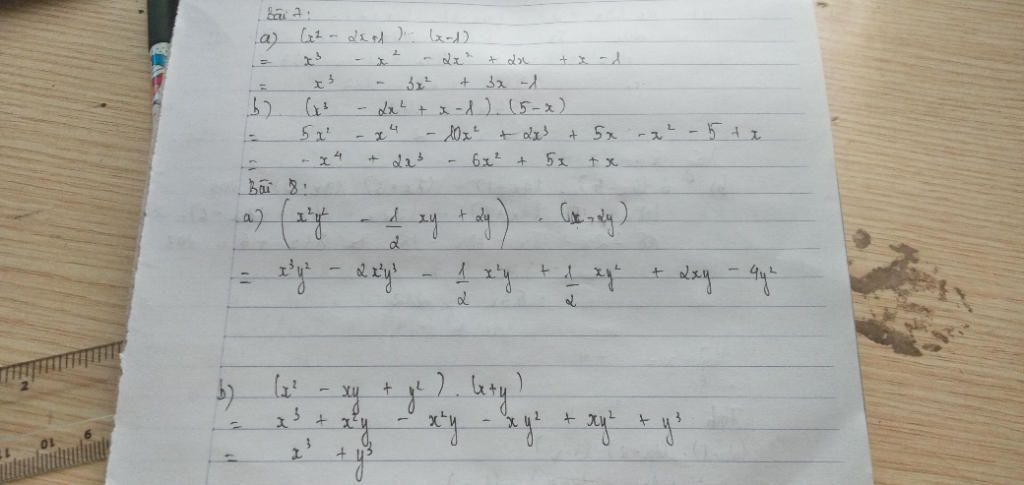 Bài 7:
a) (x² - 2x+1). (x-1)
= x³ - x² - 2x² + 2x + x - 1
= x³ - 3x² + 3x - 1
b) (x³ - 2x² + x - 1). (5-x)
= 5x² - x⁴ - 10x² + 2x³ + 5x - x² - 5 + x
= - x⁴ + 2x³ - 6x² + 5x + x
Bài 8:
a) (x²y² - 1/2 xy + 2y) . (x - 2y)
= x³y² - 2x²y³ - 1/2 x²y + 1/2 xy² + 2xy - 4y²
b) (x² - xy + y²). (x+y)
= x³ + x²y - x²y - xy² + xy² + y³
= x³ + y³
2
11 10 9